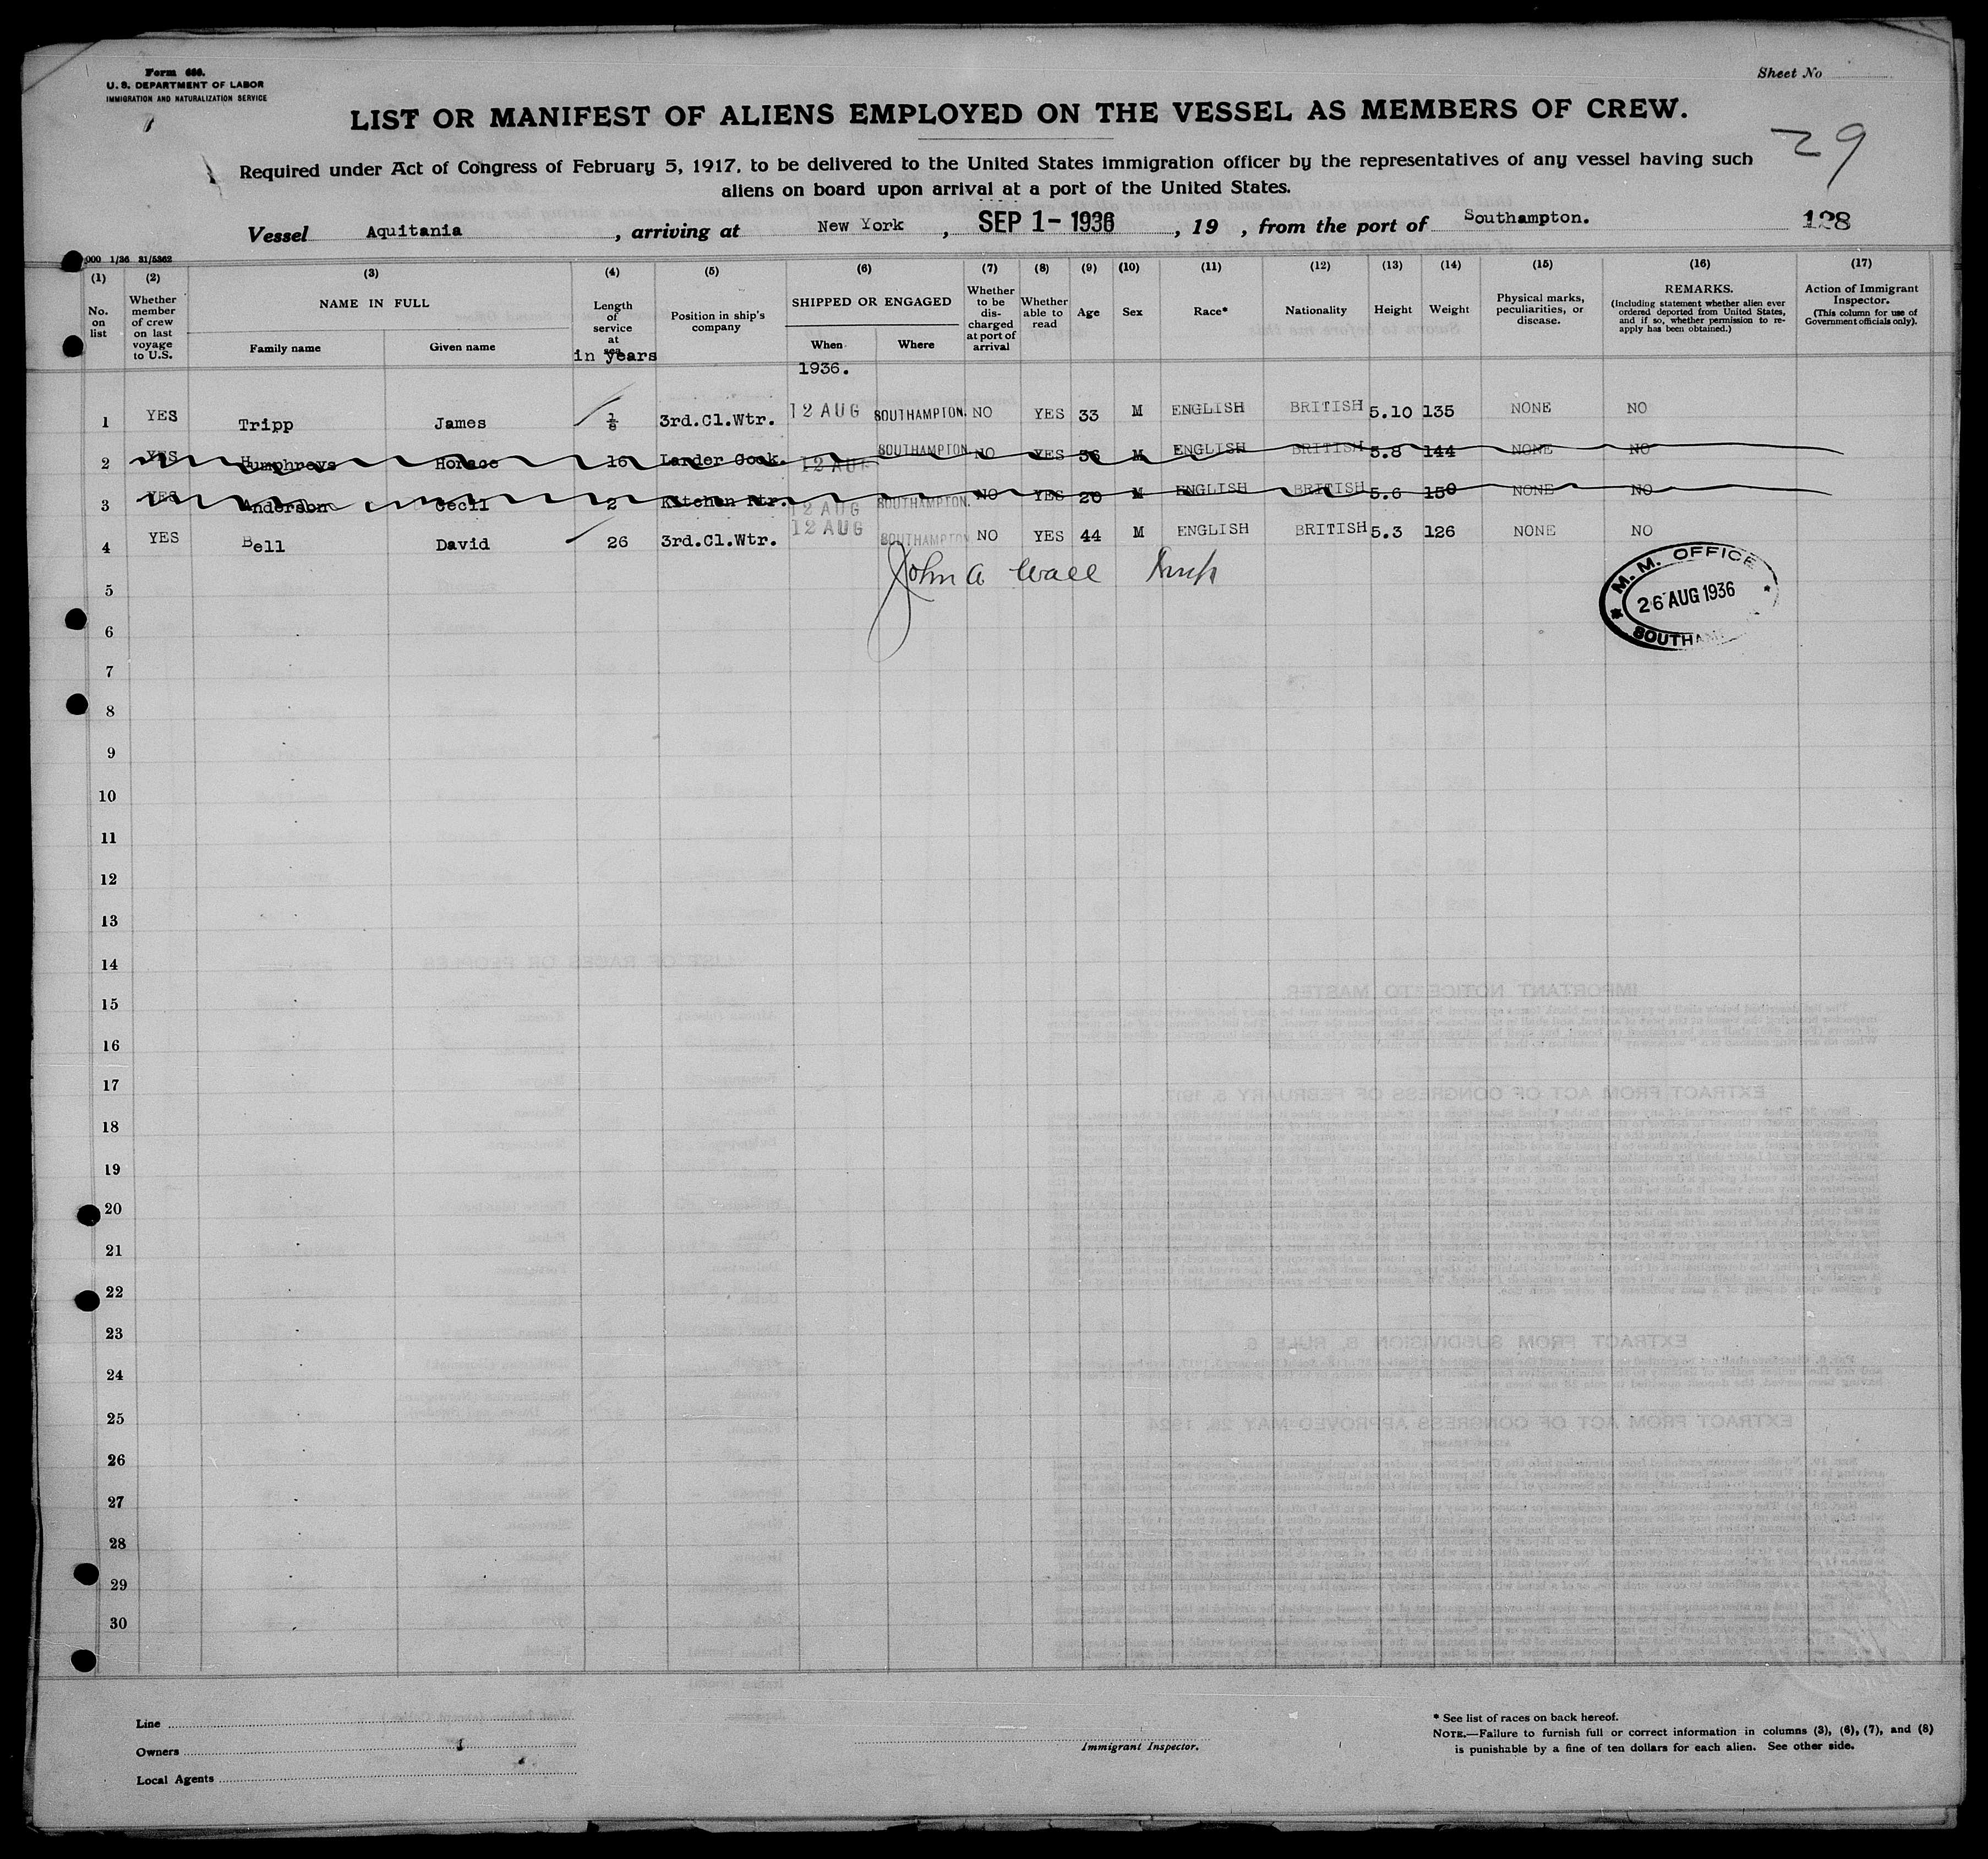 Form 680.
U. S. DEPARTMENT OF LABOR
IMMIGRATION AND NATURALIZATION SERVICE
Sheet No
LIST OR MANIFEST OF ALIENS EMPLOYED ON THE VESSEL AS MEMBERS OF CREW.
29
Required under Act of Congress of February 5, 1917, to be delivered to the United States immigration officer by the representatives of any vessel having such
aliens on board upon arrival at a port of the United States.
Vessel Aquitania, arriving at New York, SEP 1- 1936, 19 , from the port of Southampton. 128
000 1/36 31/5362
(1) (2) (3) (4) (5) (6) (7) (8) (9) (10) (11) (12) (13) (14) (15) (16) (17)
No. on list
Whether member of crew on last voyage to U.S.
NAME IN FULL
Family name
Given name
Length of service at sea
in years
Position in ship's company
SHIPPED OR ENGAGED
When
Where
Whether to be discharged at port of arrival
Whether able to read
Age
Sex
Race*
Nationality
Height
Weight
Physical marks, peculiarities, or disease.
REMARKS.
(Including statement whether alien ever ordered deported from United States, and if so, whether permission to re-apply has been obtained.)
Action of Immigrant Inspector.
(This column for use of Government officials only).
1936.
1 YES Tripp James 3rd.Cl.Wtr. 12 AUG SOUTHAMPTON. NO YES 33 M ENGLISH BRITISH 5.10 135 NONE NO
2 YES Humphreys Horace 16 Larder Cook. 12 AUG SOUTHAMPTON NO YES 36 M ENGLISH BRITISH 5.8 144 NONE NO
3 YES Anderson Cecil 2 Kitchen Ptr. 12 AUG SOUTHAMPTON. NO YES 20 M ENGLISH BRITISH 5.6 150 NONE NO
4 YES Bell David 26 3rd.Cl.Wtr. 12 AUG SOUTHAMPTON NO YES 44 M ENGLISH BRITISH 5.3 126 NONE NO
John A Wall
M. M. OFFICE
26 AUG 1936
SOUTHAM
5
6
7
8
9
10
11
12
13
14
15
16
17
18
19
20
21
22
23
24
25
26
27
28
29
30
Line
Owners
Local Agents
Immigrant Inspector.
* See list of races on back hereof.
NOTE.—Failure to furnish full or correct information in columns (3), (6), (7), and (8)
is punishable by a fine of ten dollars for each alien. See other side.